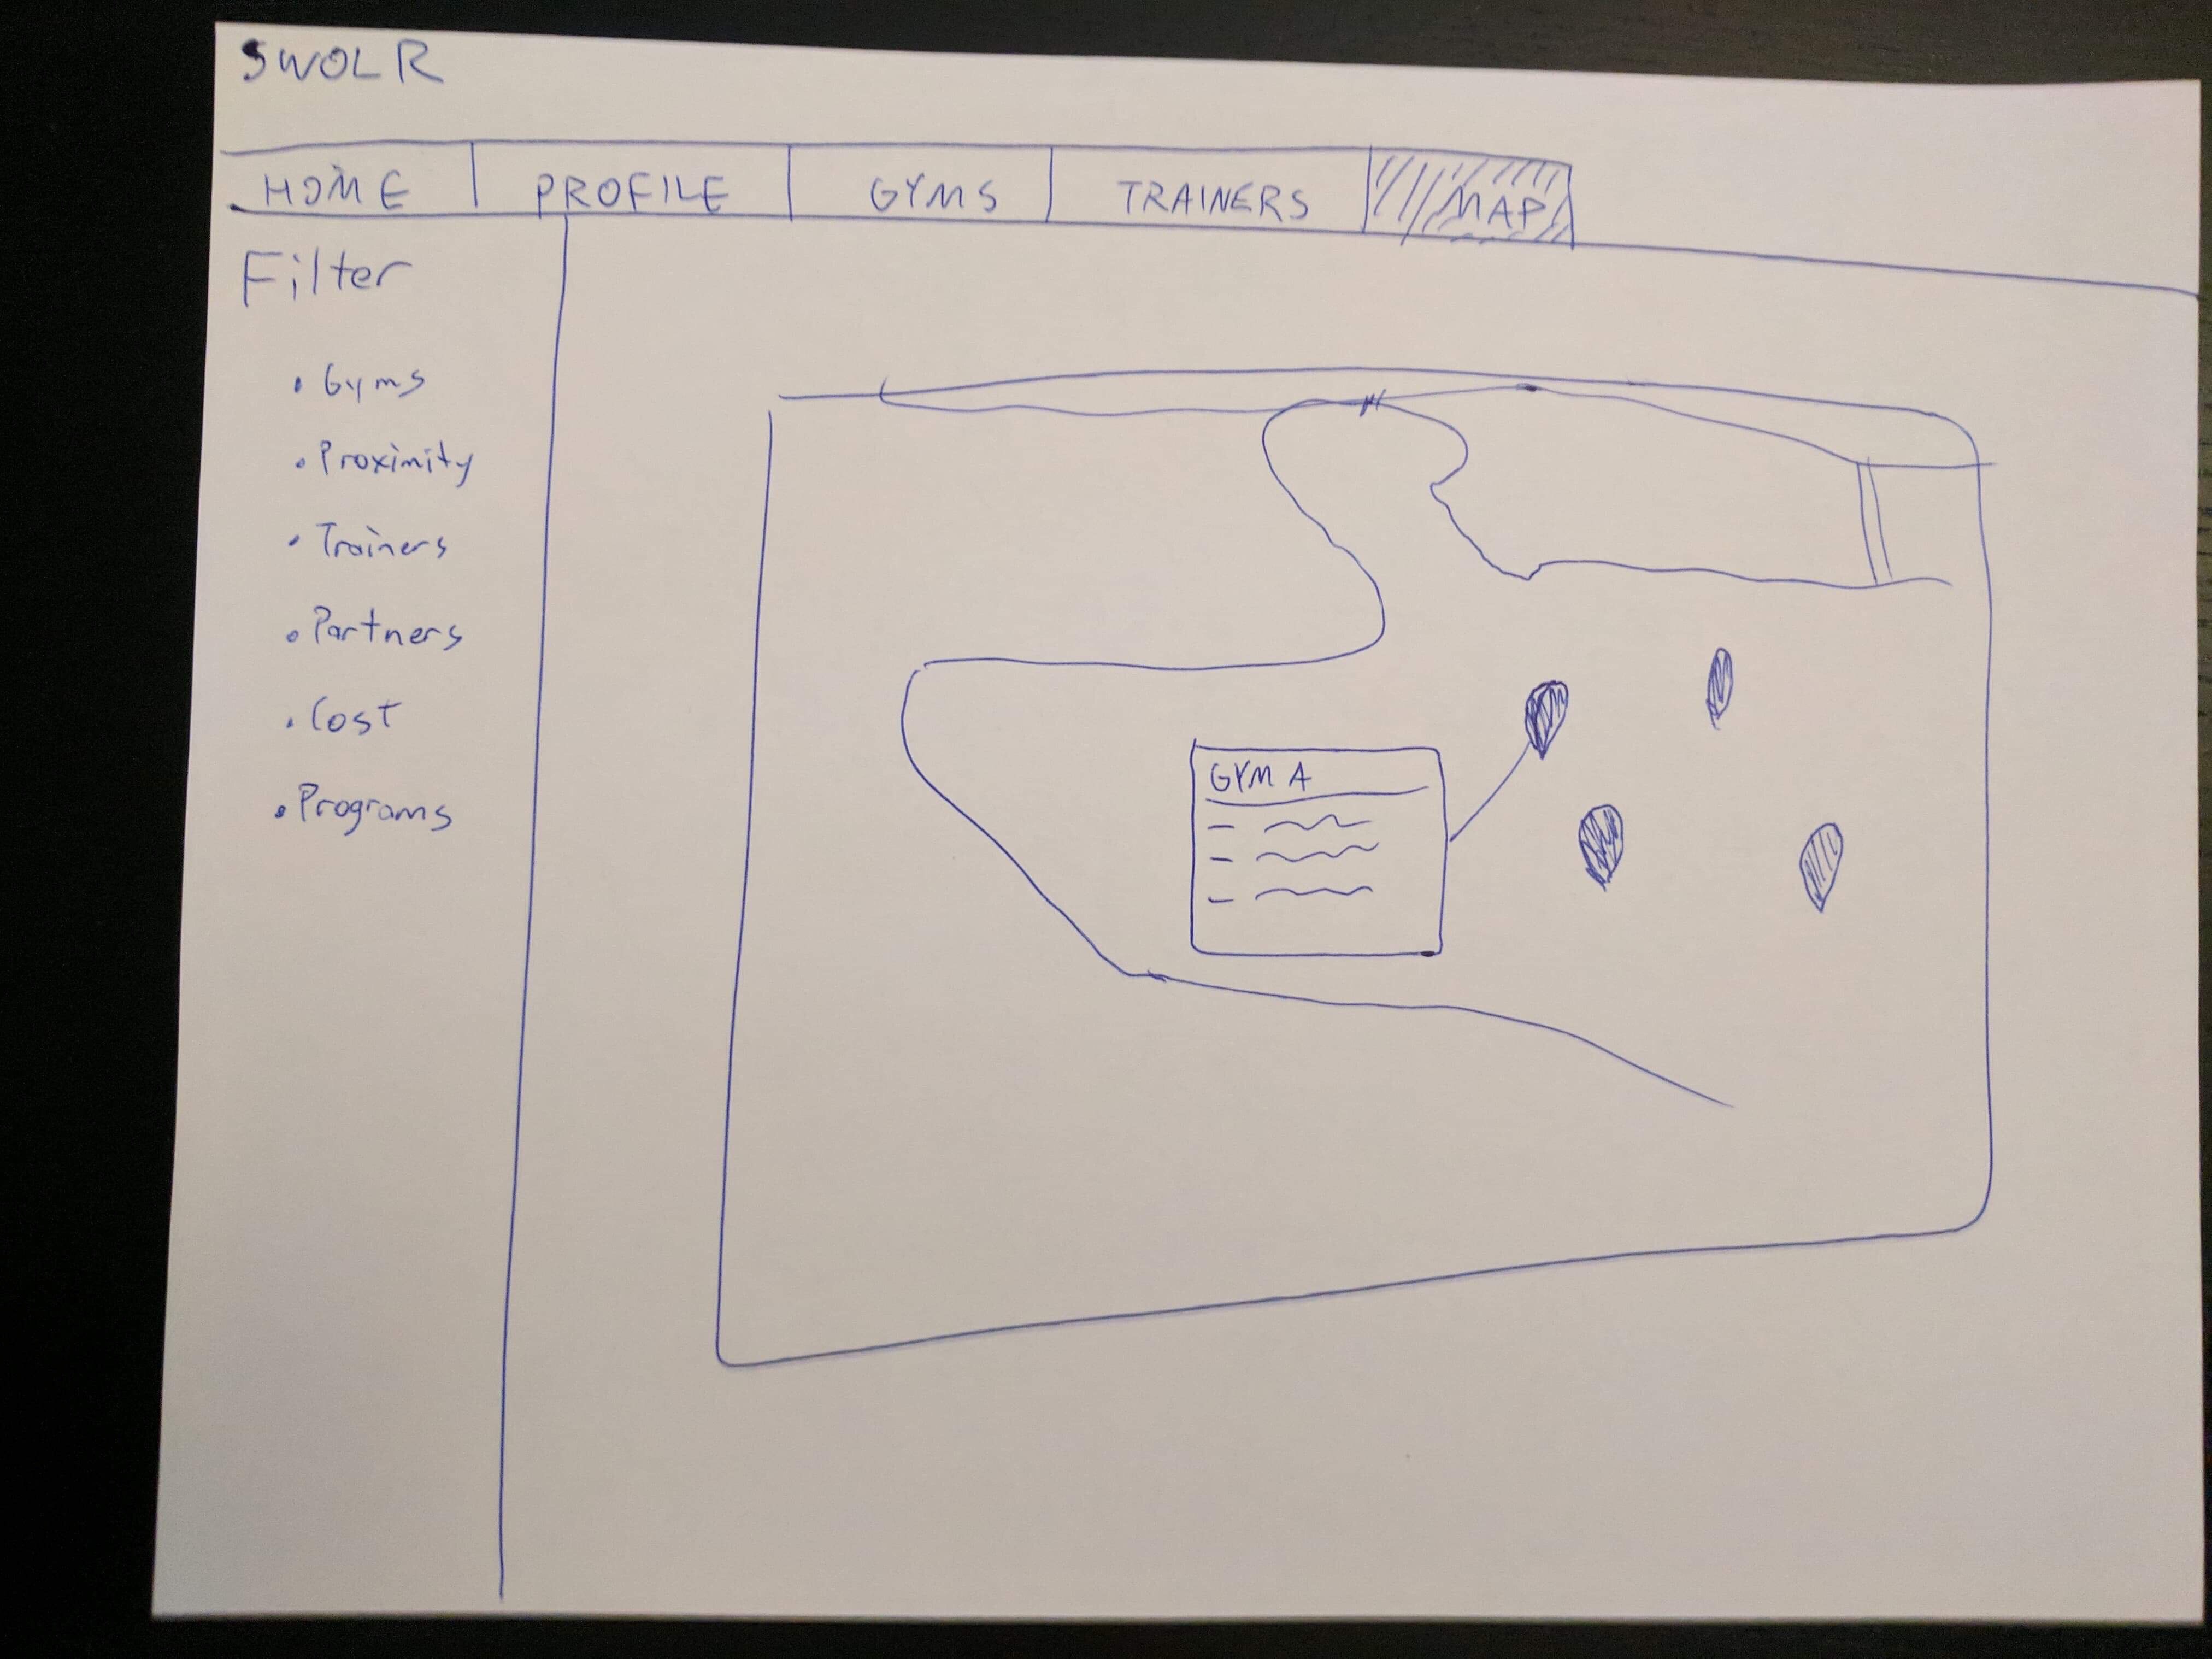 SWOLR
HOME PROFILE GYMS TRAINERS MAP
Filter
• Gyms
• Proximity
• Trainers
• Partners
• Cost
• Programs
GYM A